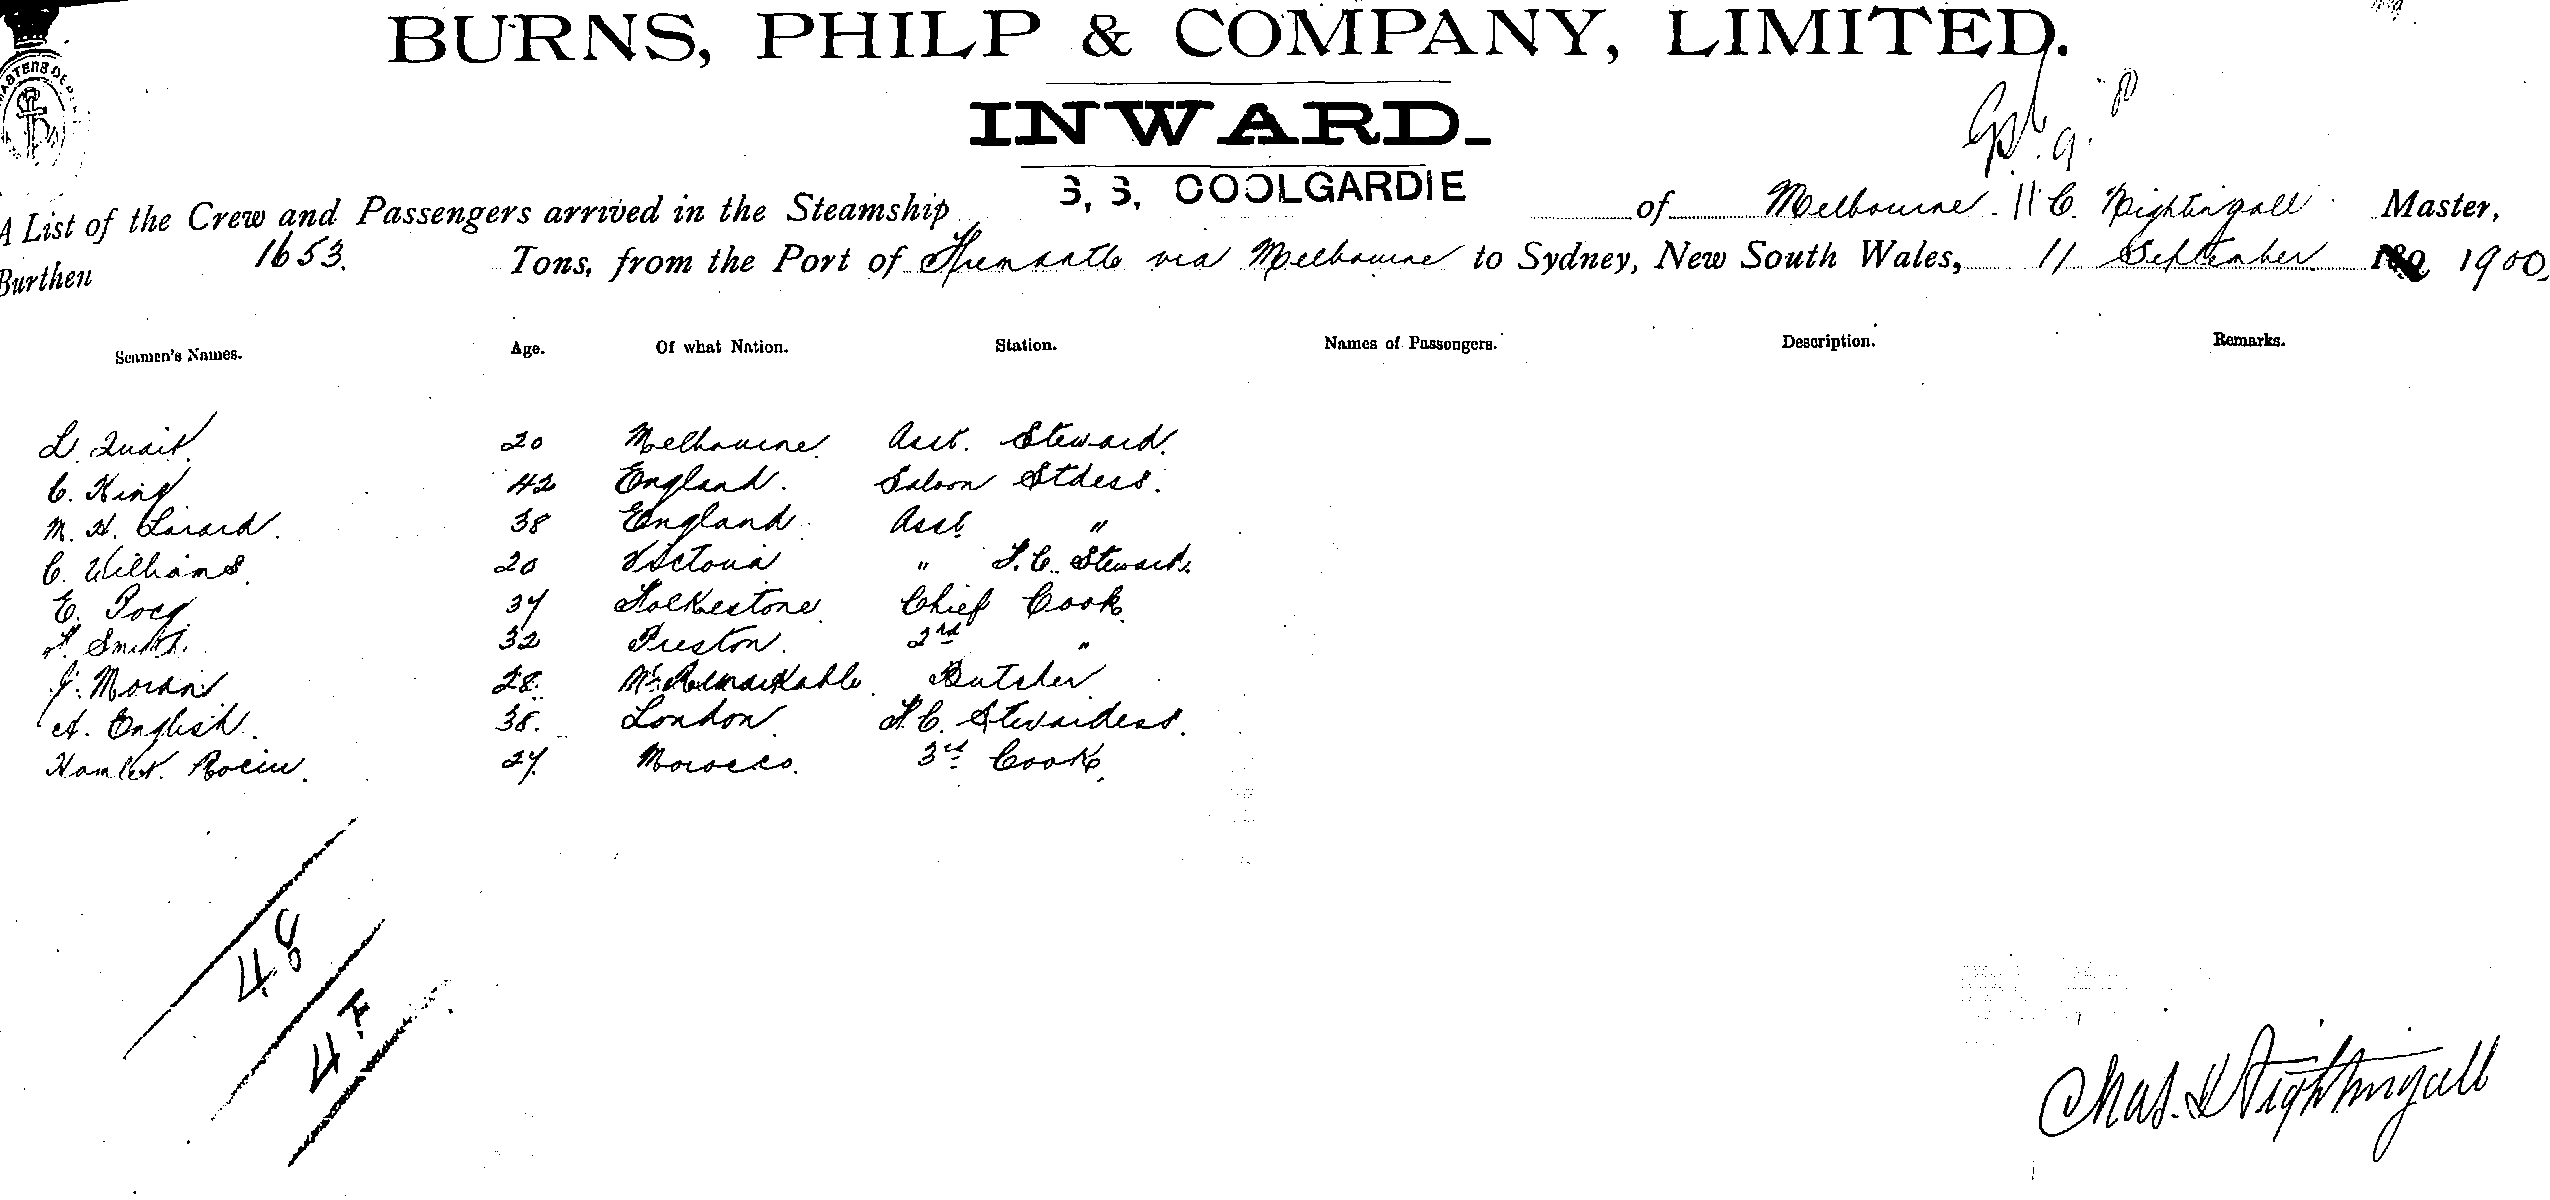 BURNS, PHILP & COMPANY, LIMITED.
INWARD.
A List of the Crew and Passengers arrived in the Steamship S, S, COOLGARDIE of Melbourne. C. Nightingall Master,
Burthen 1653. Tons, from the Port of Fremantle via Melbourne to Sydney, New South Wales, 11 September 1900,
Seamen's Names. Age. Of what Nation. Station. Names of Passengers. Description. Remarks.
L. Quait. 20 Melbourne. Asst. Steward.
C. King 42 England. Saloon Stdess.
M. H. Larard. 38 England. Asst. "
C. Williams. 20 Victoria " F.C. Steward.
E. 37 Folkestone. Chief Cook.
F. Smith. 32 Preston. 2nd "
J. Moran 28. Mt. Remarkable. Butcher
A. English. 38. London. F.C. Stewardess.
Hamlet. 27. Morocco. 3rd Cook.
48
4 F
Chas. H Nightingall